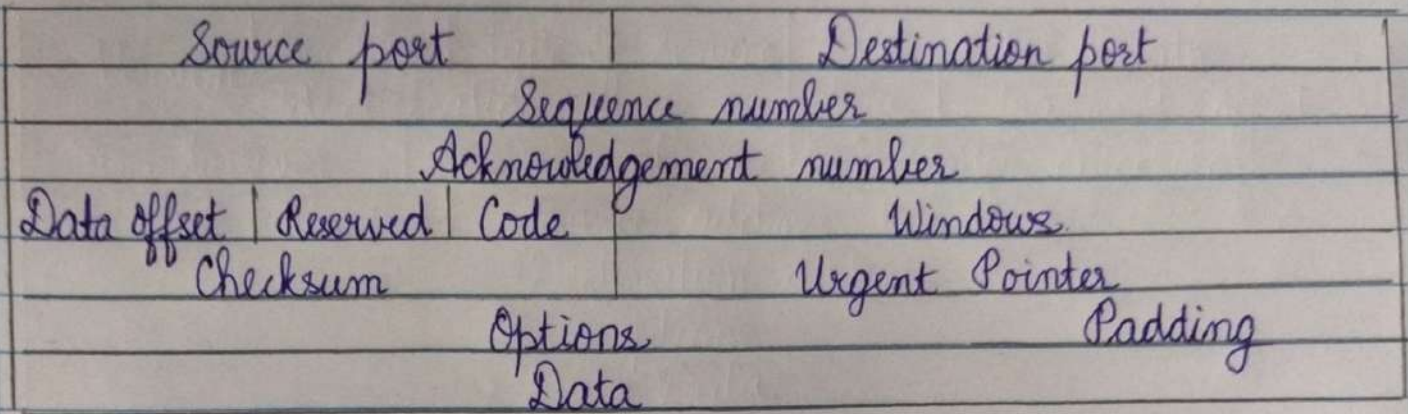 Source port | Destination port
Sequence number
Acknowledgement number
Data offset | Reserved | Code | Windows
Checksum | Urgent Pointer
Options Padding
Data